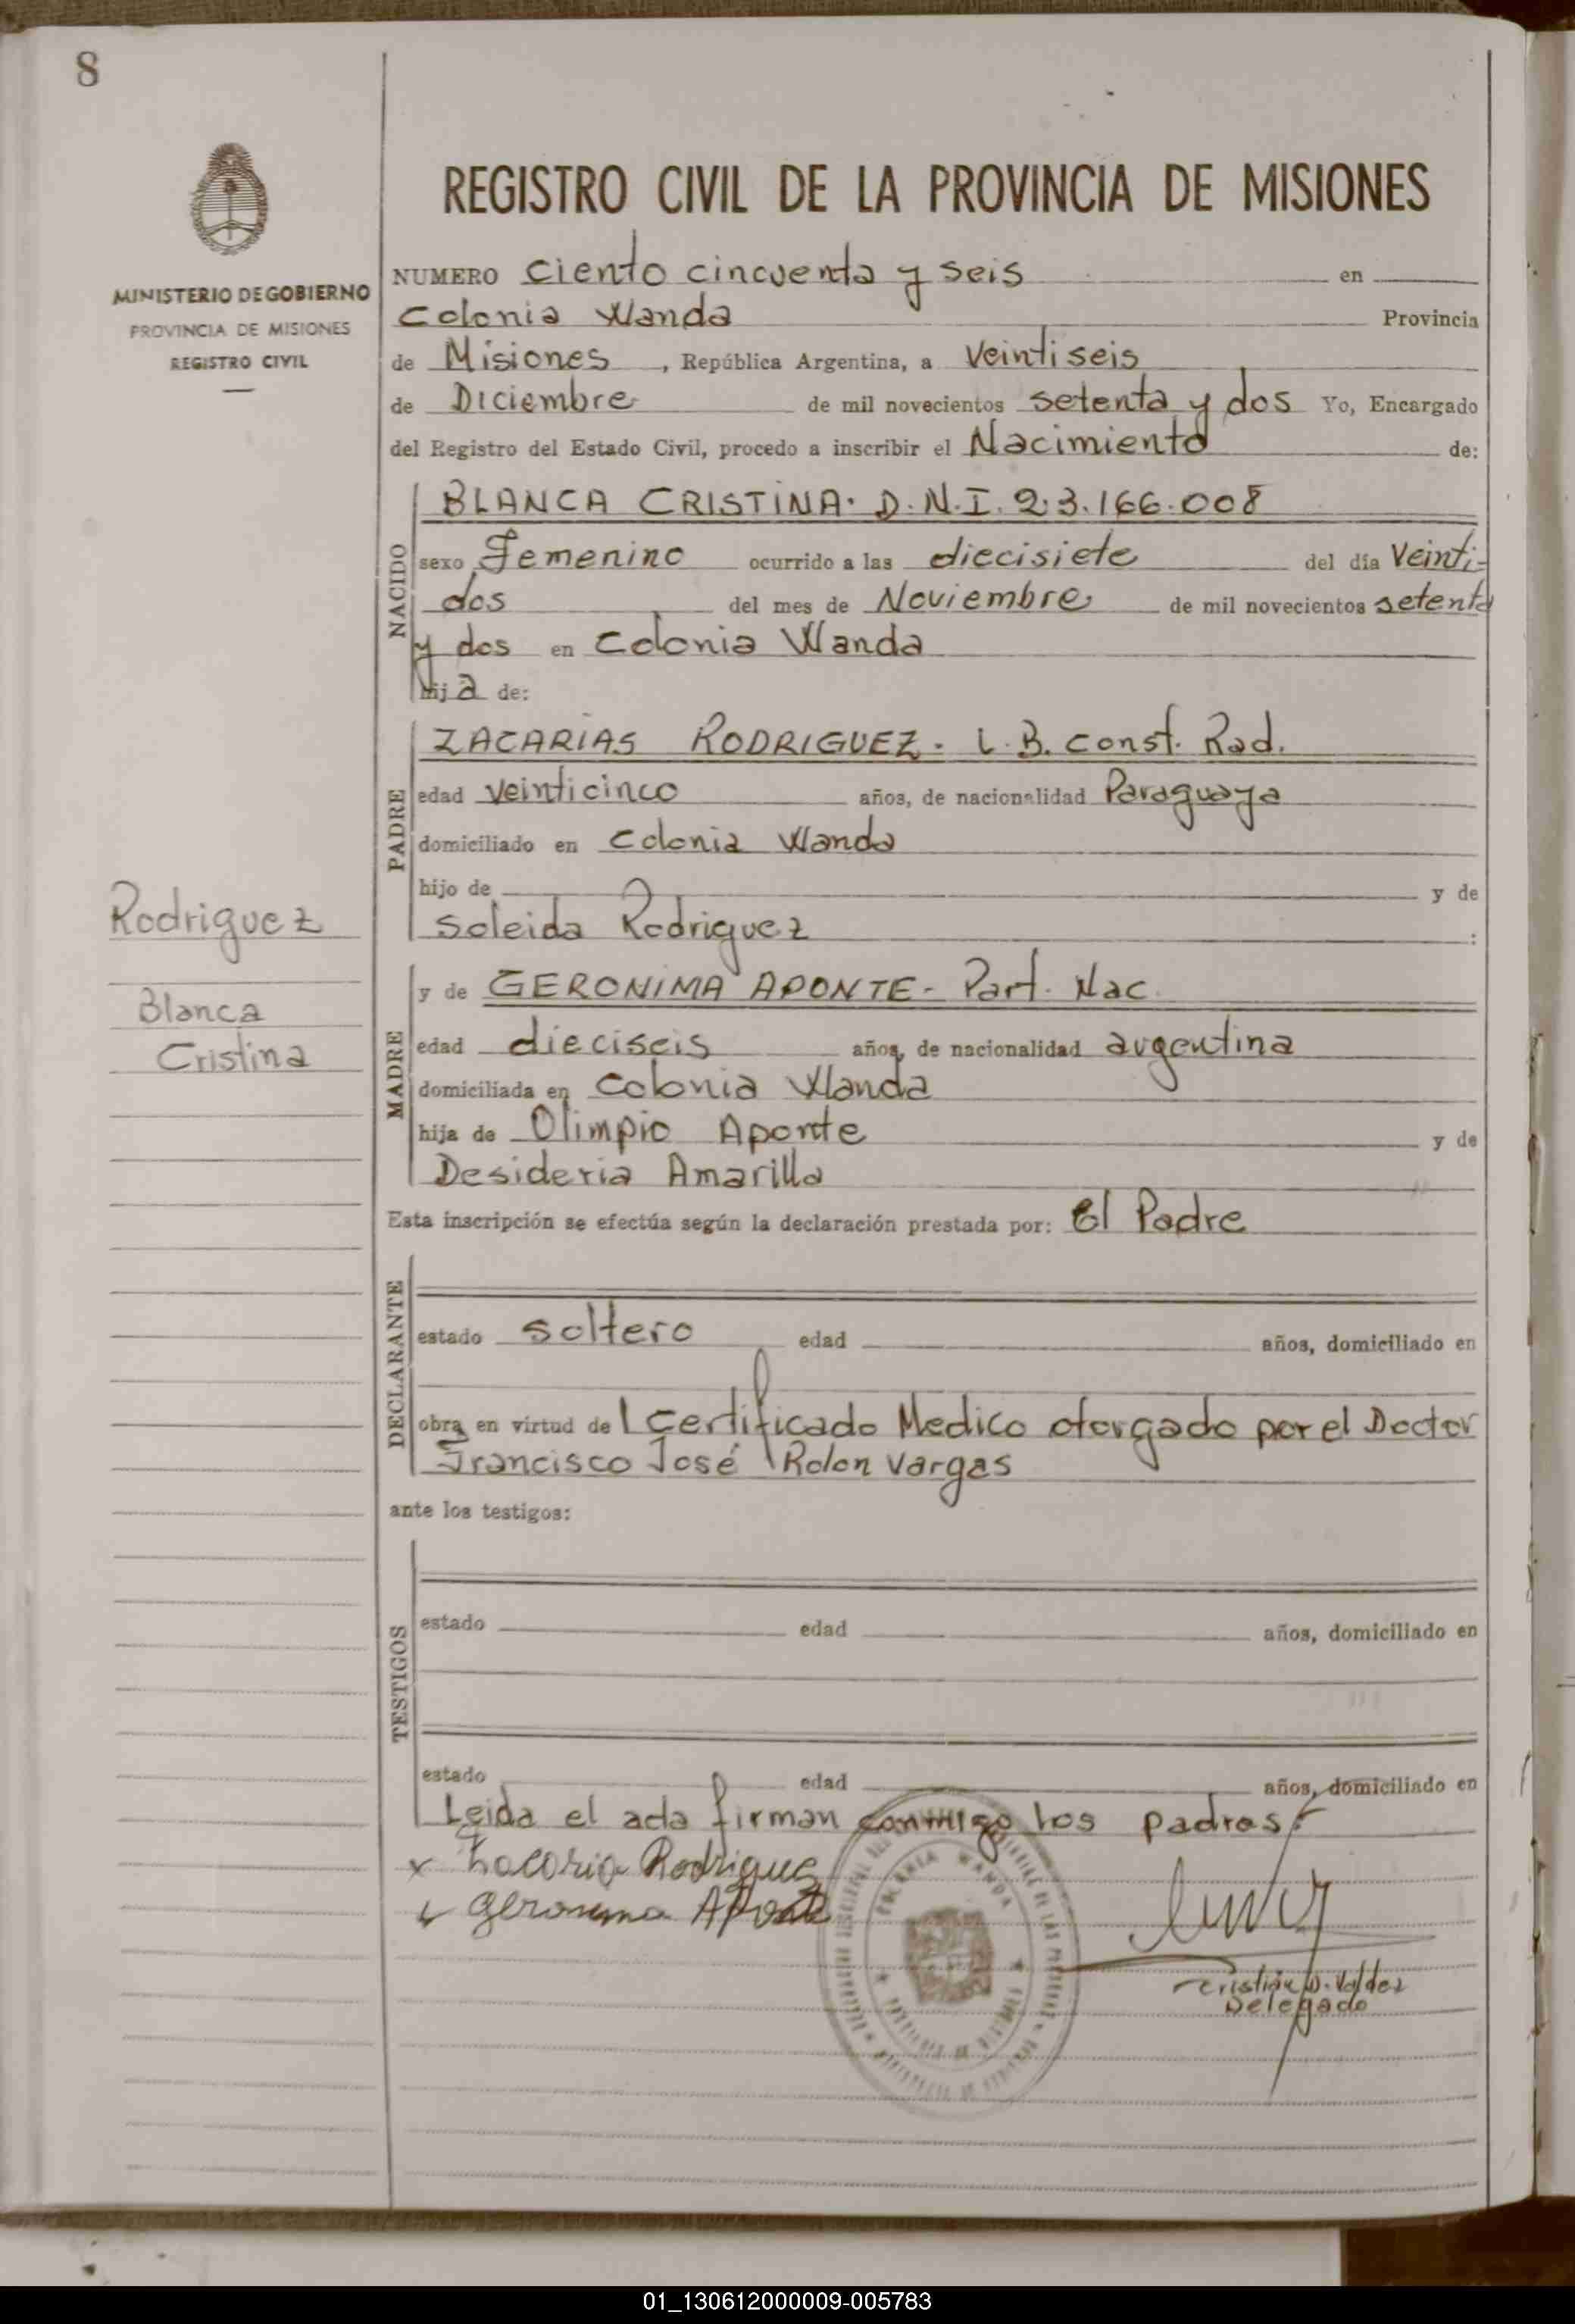 8
MINISTERIO DE GOBIERNO
PROVINCIA DE MISIONES
REGISTRO CIVIL
REGISTRO CIVIL DE LA PROVINCIA DE MISIONES
NUMERO Ciento cincuenta y seis en
Colonia Wanda Provincia
de Misiones, República Argentina, a Veintiseis
de Diciembre de mil novecientos setenta y dos Yo, Encargado
del Registro del Estado Civil, procedo a inscribir el Nacimiento de:
NACIDO
BLANCA CRISTINA. D.N.I. 23.166.008
sexo Femenino ocurrido a las diecisiete del día Veinti-
dos del mes de Noviembre de mil novecientos setenta
y dos en Colonia Wanda
hija de:
PADRE
ZACARIAS RODRIGUEZ. L.B. Const. Rad.
edad veinticinco años, de nacionalidad Paraguaya
domiciliado en Colonia Wanda
hijo de y de
Soleida Rodriguez :
Rodriguez
Blanca
Cristina
MADRE
y de GERONIMA APONTE- Part. Nac.
edad dieciseis años, de nacionalidad argentina
domiciliada en Colonia Wanda
hija de Olimpio Aponte y de
Desideria Amarilla
Esta inscripción se efectúa según la declaración prestada por: El Padre
DECLARANTE
estado soltero edad años, domiciliado en
obra en virtud del Certificado Medico otorgado por el Doctor
Francisco José Rolon Vargas
ante los testigos:
TESTIGOS
estado edad años, domiciliado en
estado edad años, domiciliado en
Leida el acta firman conmigo los padres.
x Zacaria Rodriguez
x Geronima Aponte
COLONIA WANDA
Cristián D. Valdez
Delegado
01_130612000009-005783